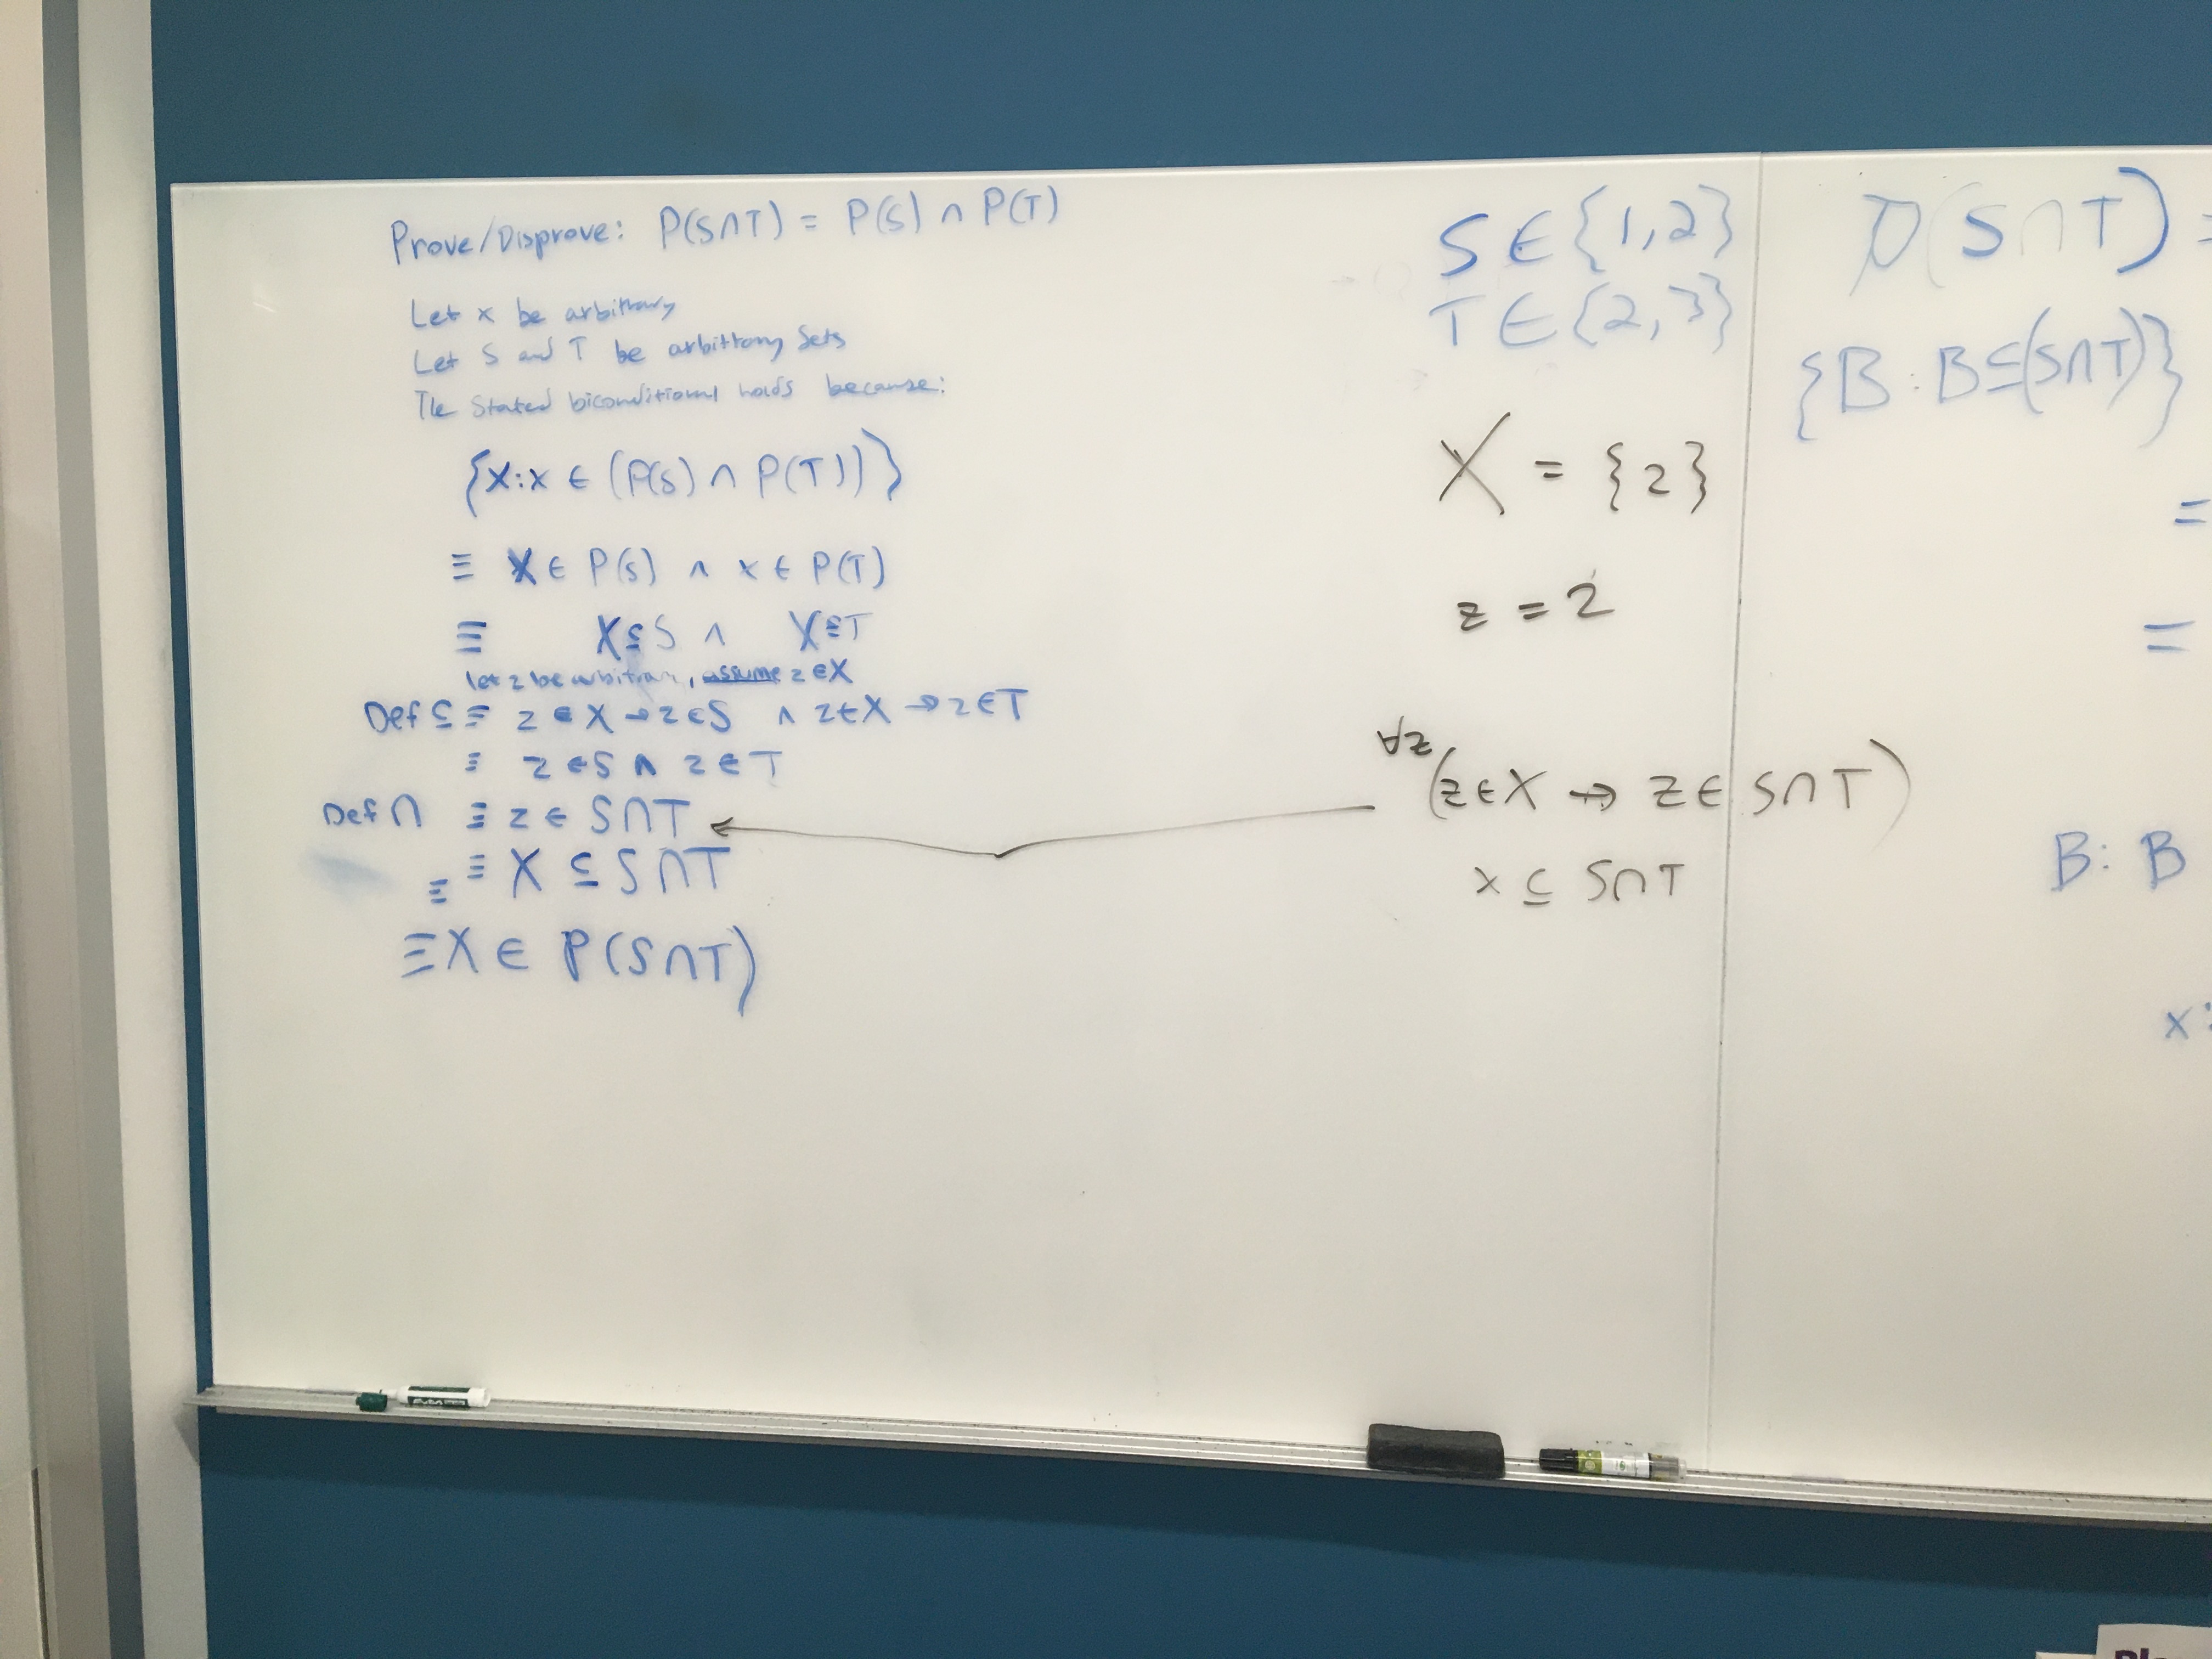 Prove/Disprove: P(S∩T) = P(S) ∩ P(T)
Let x be arbitrary
Let S and T be arbittrary Sets
The Stated biconditional holds because:
{X:x ∈ (P(S) ∩ P(T))}
≡ X ∈ P(S) ∧ x ∈ P(T)
≡ X ⊆ S ∧ X ⊆ T
let z be arbitrary, assume z ∈ X
Def ⊆ ≡ z ∈ X → z ∈ S ∧ z ∈ X → z ∈ T
≡ z ∈ S ∧ z ∈ T
Def ∩ ≡ z ∈ S∩T
≡ ≡ X ⊆ S∩T
≡ X ∈ P(S∩T)
S ∈ {1,2}
T ∈ {2,3}
X = {2}
z = 2
∀z (z ∈ X → z ∈ S∩T)
x ⊆ S∩T
P(S∩T) =
{B : B ⊆ (S∩T)}
=
=
B: B
x: